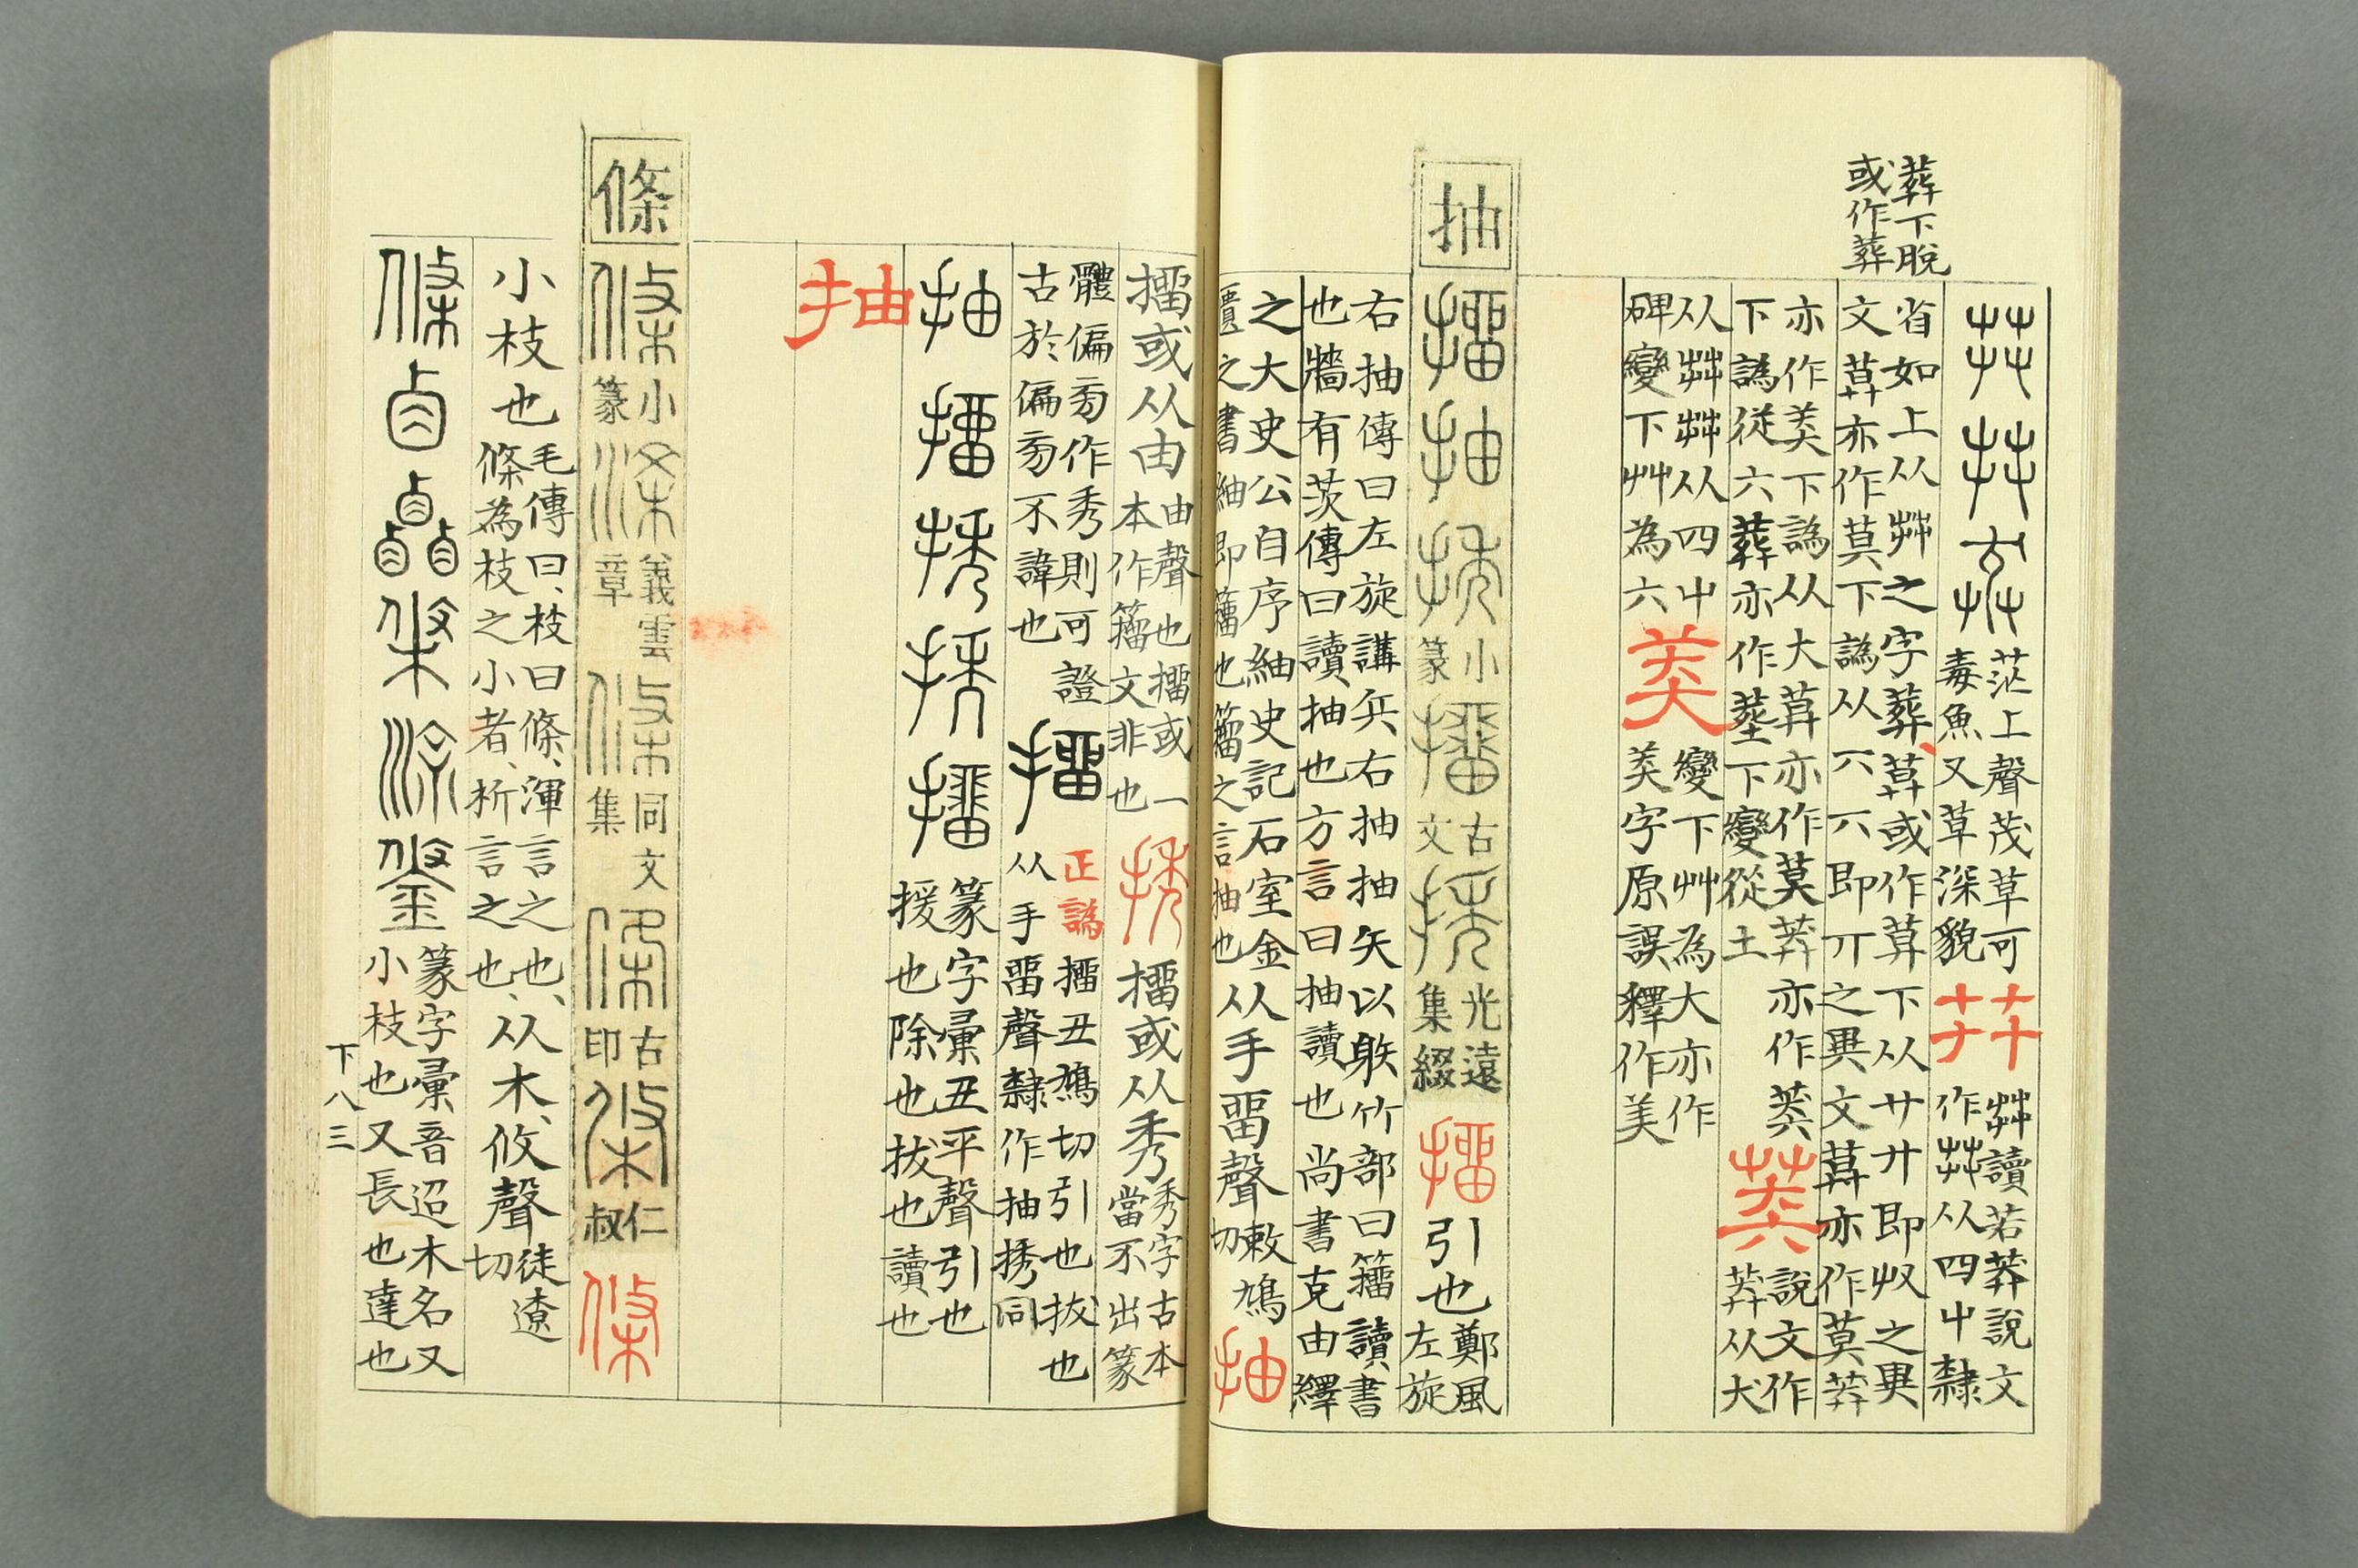 葬下脫
或作葬
茻茻茻
茫上聲茂草可
毒魚又草深貌
茻讀若莽說文
作茻从四屮隸
省如上从茻之字葬莽或作莽下从廾廾即収之異
文莽亦作莫下譌从六六即丌之異文莽亦作莫莽
亦作美下譌从大莽亦作莫莽亦作莽
下譌從六葬亦作塟下變從土
莽說文作
莽从犬
从茻茻从四屮
碑變下艸為六
變下艸為大亦作
美字原誤釋作美
抽
㩅抽㨨
小
篆
㩅
古
文
㨨
光遠
集綴
㩅
引也
鄭風
左旋
右抽傳曰左旋講兵右抽抽矢以䠶竹部曰籒讀書
也牆有茨傳曰讀抽也方言曰抽讀也尚書克由繹
之大史公自序紬史記石室金
匱之書紬即籒也籒之言抽也
从手畱聲
敕鳩
切
抽
㩅或从由
由聲也㩅或一
本作籒文非也
㨨
㩅或从秀
秀字古本
當不出篆
體偏旁作秀則可證
古於偏旁不諱也
㩅
正譌㩅丑鳩切引也拔也
从手畱聲隸作抽㨨同
抽㩅㨨㨨㩅
篆字彙丑平聲引也
援也除也拔也讀也
抽
條
條
小
篆
條
義雲
章
條
同文
集
條
古
印
條
仁
叔
條
小枝也
毛傳曰、枝曰條、渾言之也、
條為枝之小者、析言之也、
从木、攸聲
徒遼
切
條
篆字彙音迢木名又
小枝也又長也達也
下八三